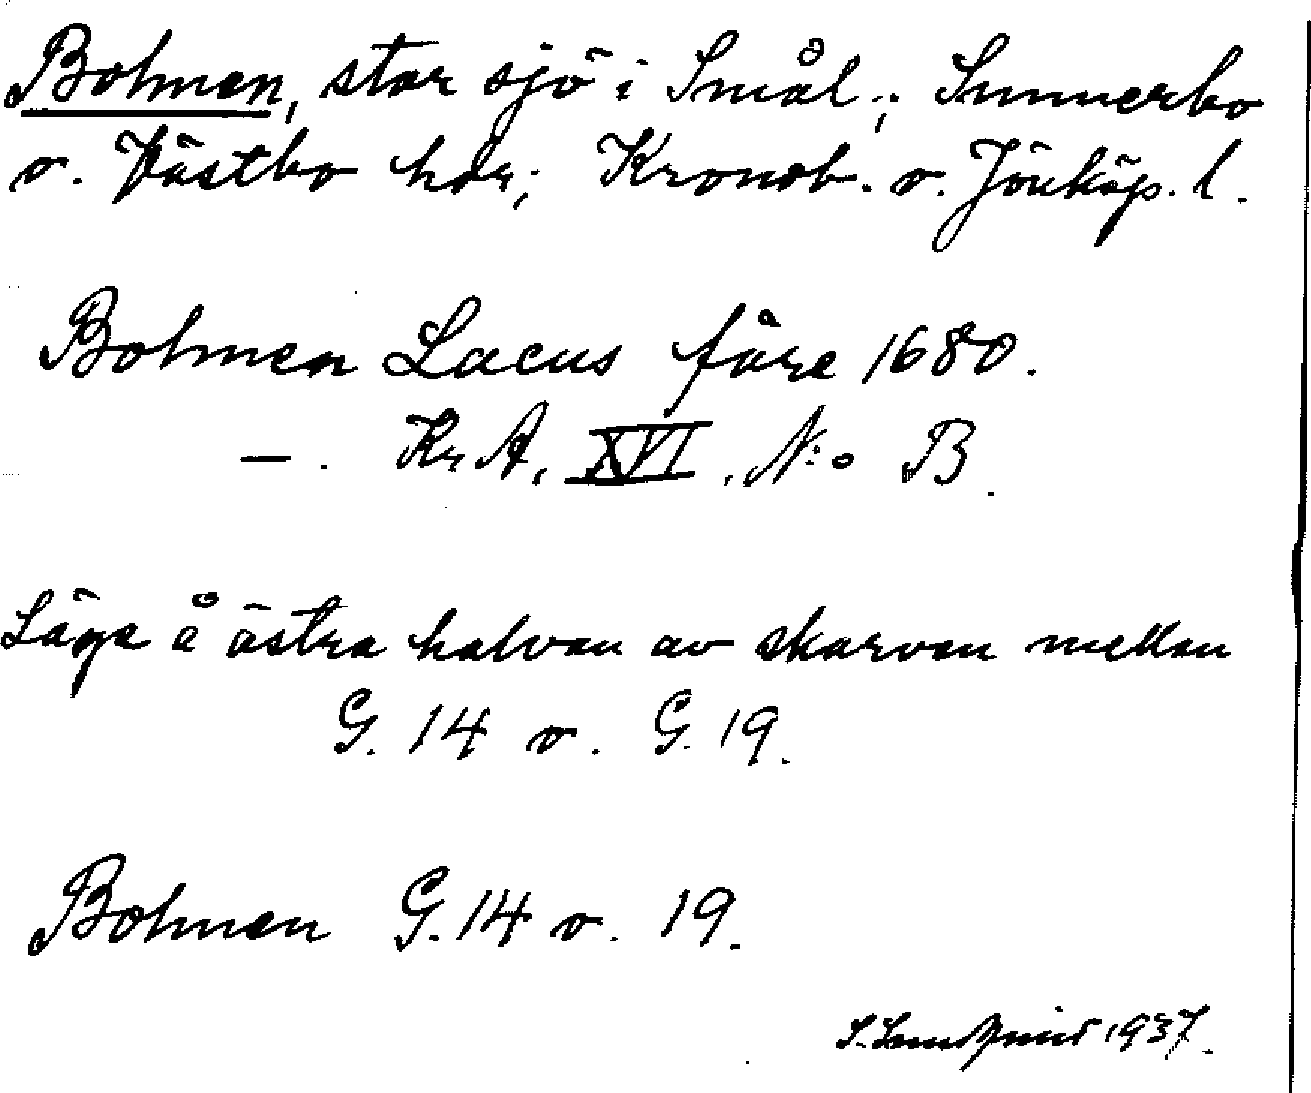 Bolmen, stor sjö i Smål.; Sunnerbo
o. Västbo hdr; Kronob. o. Jönköp. l.
Bolmen Lacus före 1680.
—. Kr. A. XVI. N:o B.
Läge å östra halvan av skarven mellan
G. 14 o. G. 19.
Bolmen G. 14 o. 19.
1937.